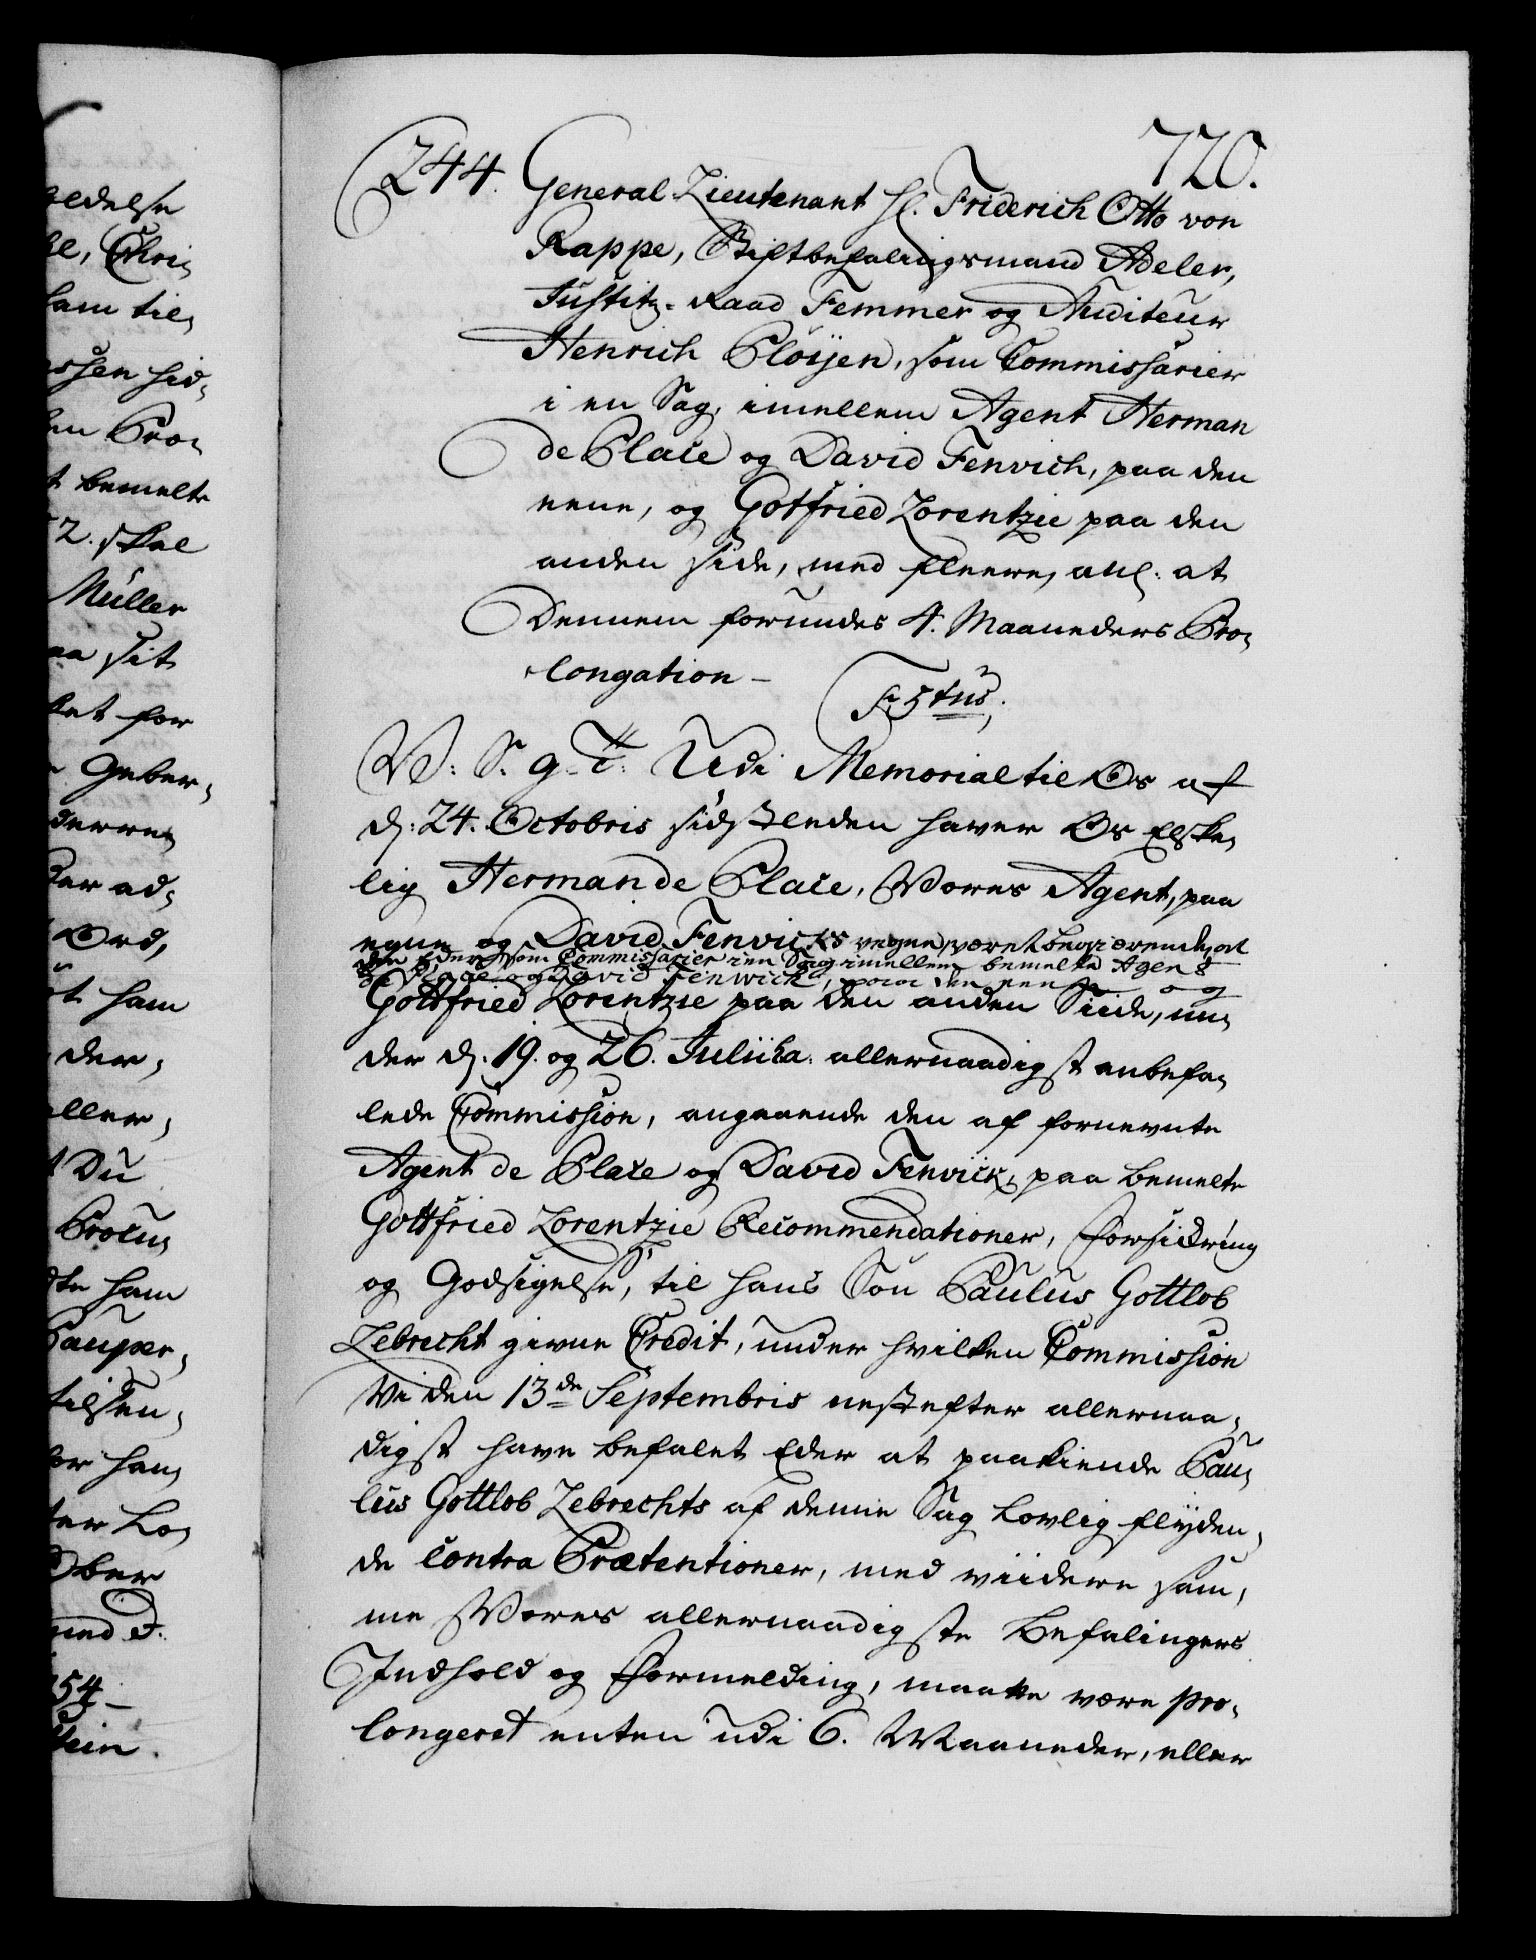 720.
244. General-Lieutenant Hl. Friderich Otto von
Rappe, Stiftbefalingsmand Adeler,
Justitz-Raad Femmer og Auditeur
Henrich Pløijen, som Commissarier
i en Sag, imellem Agent Herman
de Place og David Fenvich, paa den
eene, og Gotfried Lorentzie paa den
anden side, med fleere, anl: at
Dennem forundes 4. Maaneders Pro-
longation -
F 5tus.
W: S. g. T: Udi Memorial til Os af
d: 24. Octobris sidstleden haver Os Elske-
lig Herman de Place, Vores Agent, paa
egne og David Fenvicks vegne været begiærende, at
den Eder som Commissarier i en Sag imellem bemelte Agent
de Place og David Fenwick, paa den eene og
Gottfried Lorentzie paa den anden Siide, un-
der d: 19. og 26. Julii h.a. allernaadigst anbefa-
lede Commission, angaaende den af fornevnte
Agent de Place og David Fenvick, paa bemelte
Gottfried Lorentzie Recommendationer, Forsickring
og Godsigelse, til hans Søn Paulus Gottlob
Lebrecht givne Credit, under hvilken Commission
Vi den 13de Septembris nestefter allernaa-
digst have befalet Eder at paakiende Pau-
lus Gottlob Lebrechts af denne Sag lovlig flyden-
de Contra Prætentioner, med viidere sam-
me Vores allernaadigste Befalingers
Indhold og Formelding, maatte være pro-
longeret enten udi 6. Maaneder, eller